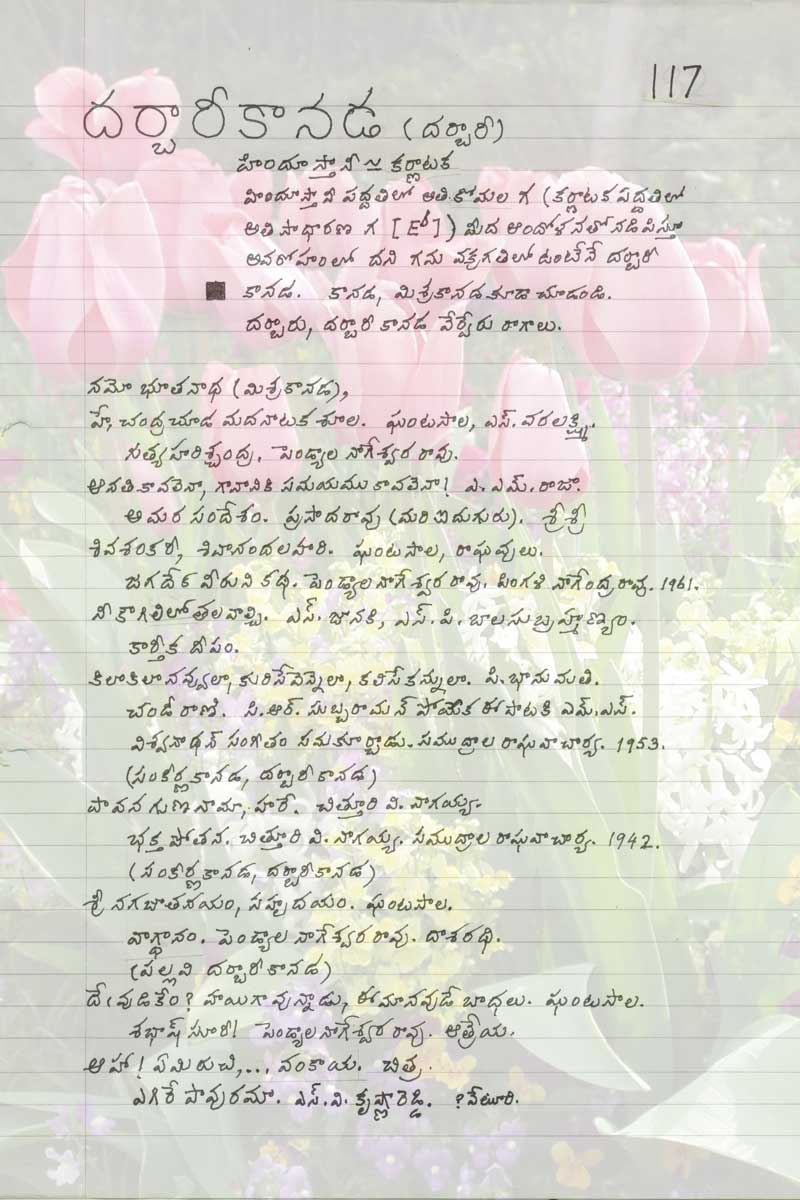 117
దర్బారీకానడ (దర్బారీ)
హిందూస్తానీ ~ కర్ణాటక
హిందూస్తానీ పద్ధతిలో అతి కోమల గ (కర్ణాటక పద్ధతిలో
అతి సాధారణ గ [E♭]) మీద ఆందోళనతో నడిపిస్తూ
అవరోహంలో దని గమ వక్రగతిలో ఉంటేనే దర్బారీ
కానడ. కానడ, మిశ్రకానడ కూడా చూడండి.
దర్బారు, దర్బారీ కానడ వేర్వేరు రాగాలు.
నమో భూతనాథ (మిశ్రకానడ),
హే, చంద్రచూడ మదనాటక శూల. ఘంటసాల, ఎస్. వరలక్ష్మి.
సత్యహరిశ్చంద్ర. పెండ్యాల నాగేశ్వర రావు.
ఆనతి కావలెనా, గానానికి సమయము కావలెనా! ఎ. ఎమ్. రాజా.
అమర సందేశం. ప్రసాదరావు (మరి ఐదుగురు). శ్రీశ్రీ
శివశంకరీ, శివానందలహరి. ఘంటసాల, రాఘవులు.
జగదేక వీరుని కథ. పెండ్యాల నాగేశ్వర రావు. పింగళి నాగేంద్రరావు. 1961.
నీ కౌగిలిలో తలవాల్చి. ఎస్. జానకి, ఎస్. పి. బాలసుబ్రహ్మణ్యం.
కార్తీక దీపం.
కిలాకిలా నవ్వులా, కురిసేవెన్నెలా, కలిసేకన్నులా. పి. భానుమతి.
చండీరాణి. సి. ఆర్. సుబ్బరామన్ పోయాక ఈ పాటకి ఎమ్. ఎస్.
విశ్వనాథన్ సంగీతం సమకూర్చాడు. సముద్రాల రాఘవాచార్య. 1953.
(సంకీర్ణకానడ, దర్బారీకానడ)
పావన గుణనామా, హరే. చిత్తూరి వి. నాగయ్య.
భక్త పోతన. చిత్తూరి వి. నాగయ్య. సముద్రాల రాఘవాచార్య. 1942.
(సంకీర్ణకానడ, దర్బారీకానడ)
శ్రీ నగజాతనయం, సహృదయం. ఘంటసాల.
వాగ్దానం. పెండ్యాల నాగేశ్వర రావు. దాశరథి.
(పల్లవి దర్బారీకానడ)
దేవుడికేం? హాయిగా వున్నాడు, ఈ మానవుడే బాధలు. ఘంటసాల.
శభాష్ సూరీ! పెండ్యాల నాగేశ్వర రావు. ఆత్రేయ.
ఆహా! ఏమి రుచి,... వంకాయ. చిత్ర.
ఎగిరే పావురమా. ఎస్. వి. కృష్ణారెడ్డి. ?వేటూరి.